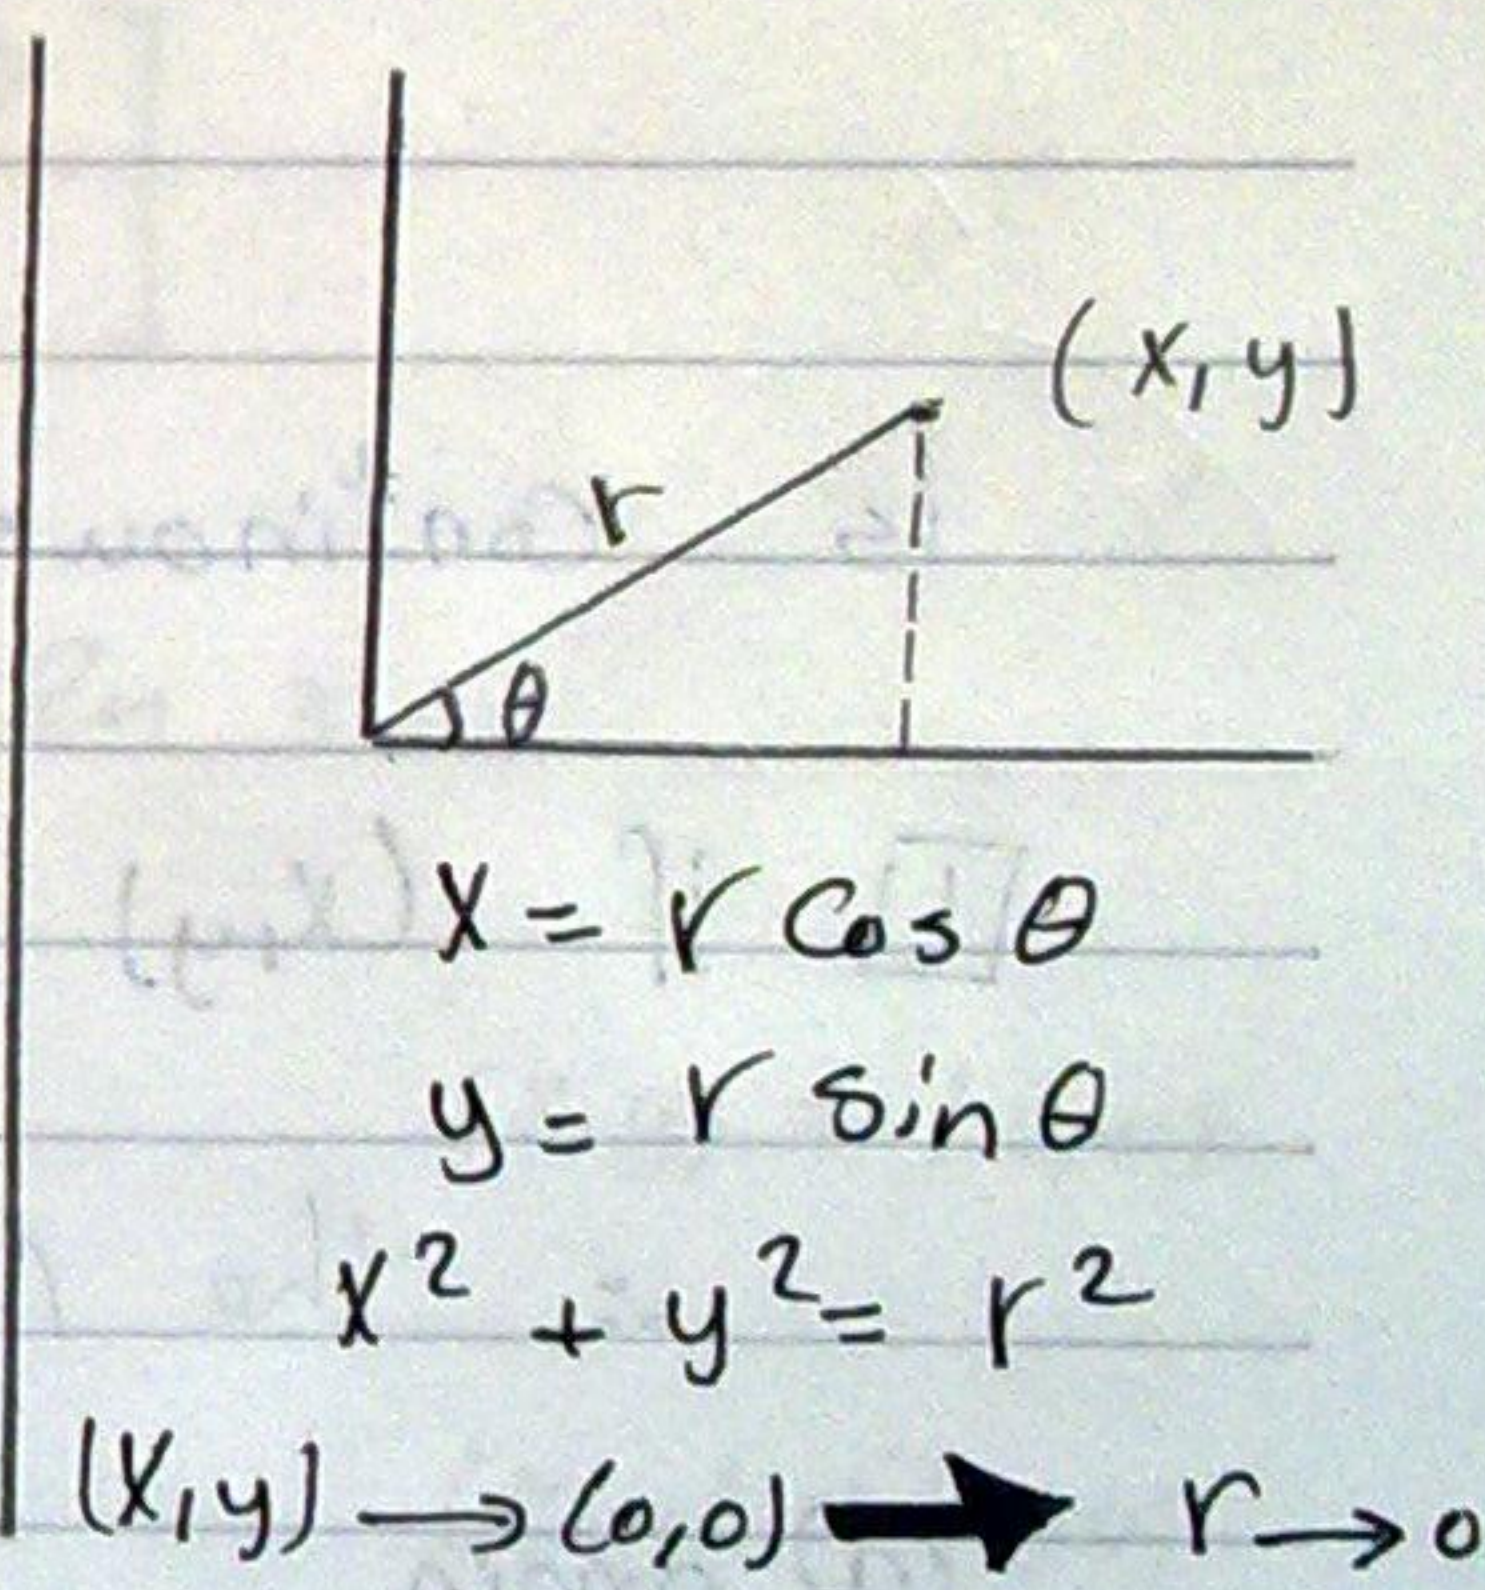 (x,y)
r
θ
x = r cos θ
y = r sin θ
x² + y² = r²
(x,y) → (0,0) ➡ r → 0